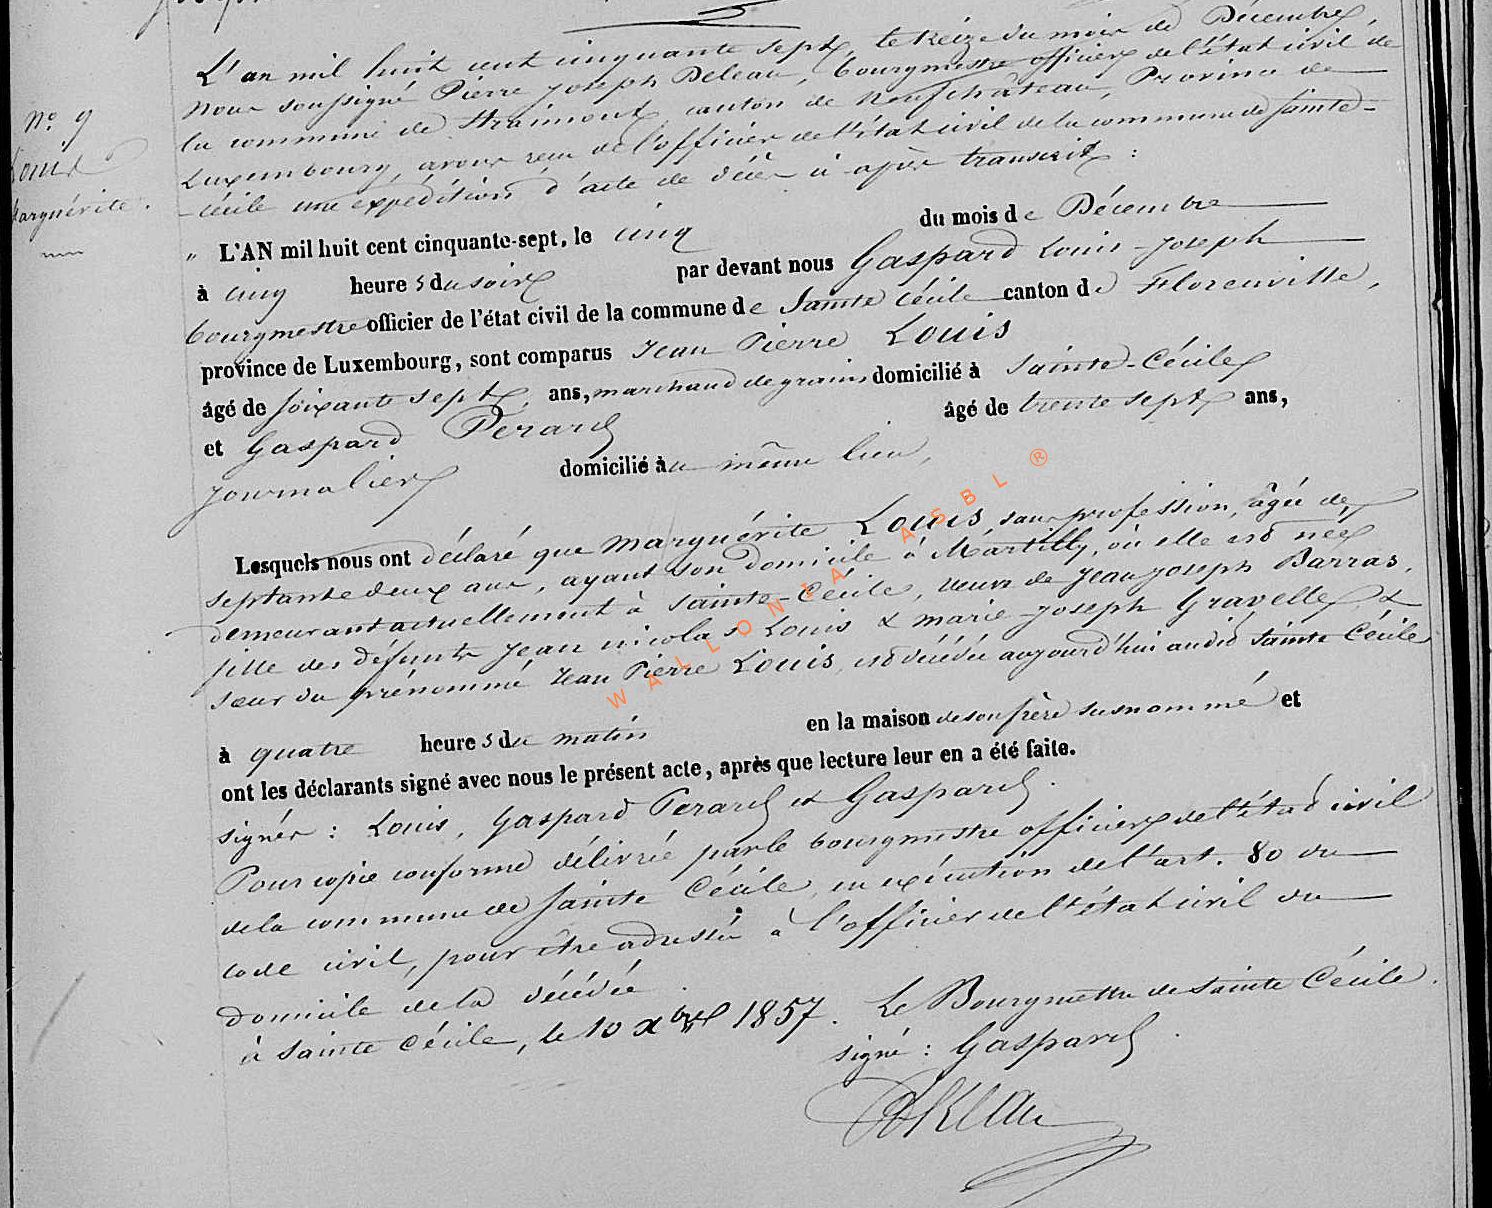 L'an mil huit cent cinquante sept, le treize du mois de Décembre,
Nous soussigné Pierre Joseph Deleau, bourgmestre officier de l'état civil de
la commune de Straimont canton de Neufchâteau, Province de
Luxembourg, avons reçu de l'officier de l'état civil de la commune de Sainte-
-Cécile une expédition d'acte de décès ci-après transcrit :
N° 9
Louis
Marguérite.
„ L'AN mil huit cent cinquante-sept, le cinq du mois de Décembre
à cinq heures du soir par devant nous Gaspard Louis-Joseph
bourgmestre officier de l'état civil de la commune de Sainte Cécile canton de Florenville,
province de Luxembourg, sont comparus Jean Pierre Louis
âgé de soixante sept ans, marchand de grains domicilié à Sainte-Cécile
et Gaspard Perard âgé de trente sept ans,
journalier domicilié au même lieu,
Lesquels nous ont déclaré que Marguérite Louis, sans profession, âgée de
septante deux ans, ayant son domicile à Martilly, où elle est née
demeurant actuellement à Sainte-Cécile, veuve de Jean Joseph Barras,
fille des défunts Jean Nicolas Louis & Marie-Joseph Gravelle, &
sœur du prénommé Jean Pierre Louis, est décédée aujourd'hui audit Sainte Cécile
à quatre heures du matin en la maison de son frère susnommé et
ont les déclarants signé avec nous le présent acte, après que lecture leur en a été faite.
signés : Louis, Gaspard Perard et Gaspard.
Pour copie conforme délivrée par le bourgmestre officier de l'état civil
de la commune de Sainte Cécile, en exécution de l'art. 80 du
code civil, pour être adressée à l'officier de l'état civil du
domicile de la décédée.
à Sainte Cécile, le 10 Xbre 1857. Le Bourgmestre de Sainte Cécile.
signé : Gaspard.
WALLONIA ASBL ®